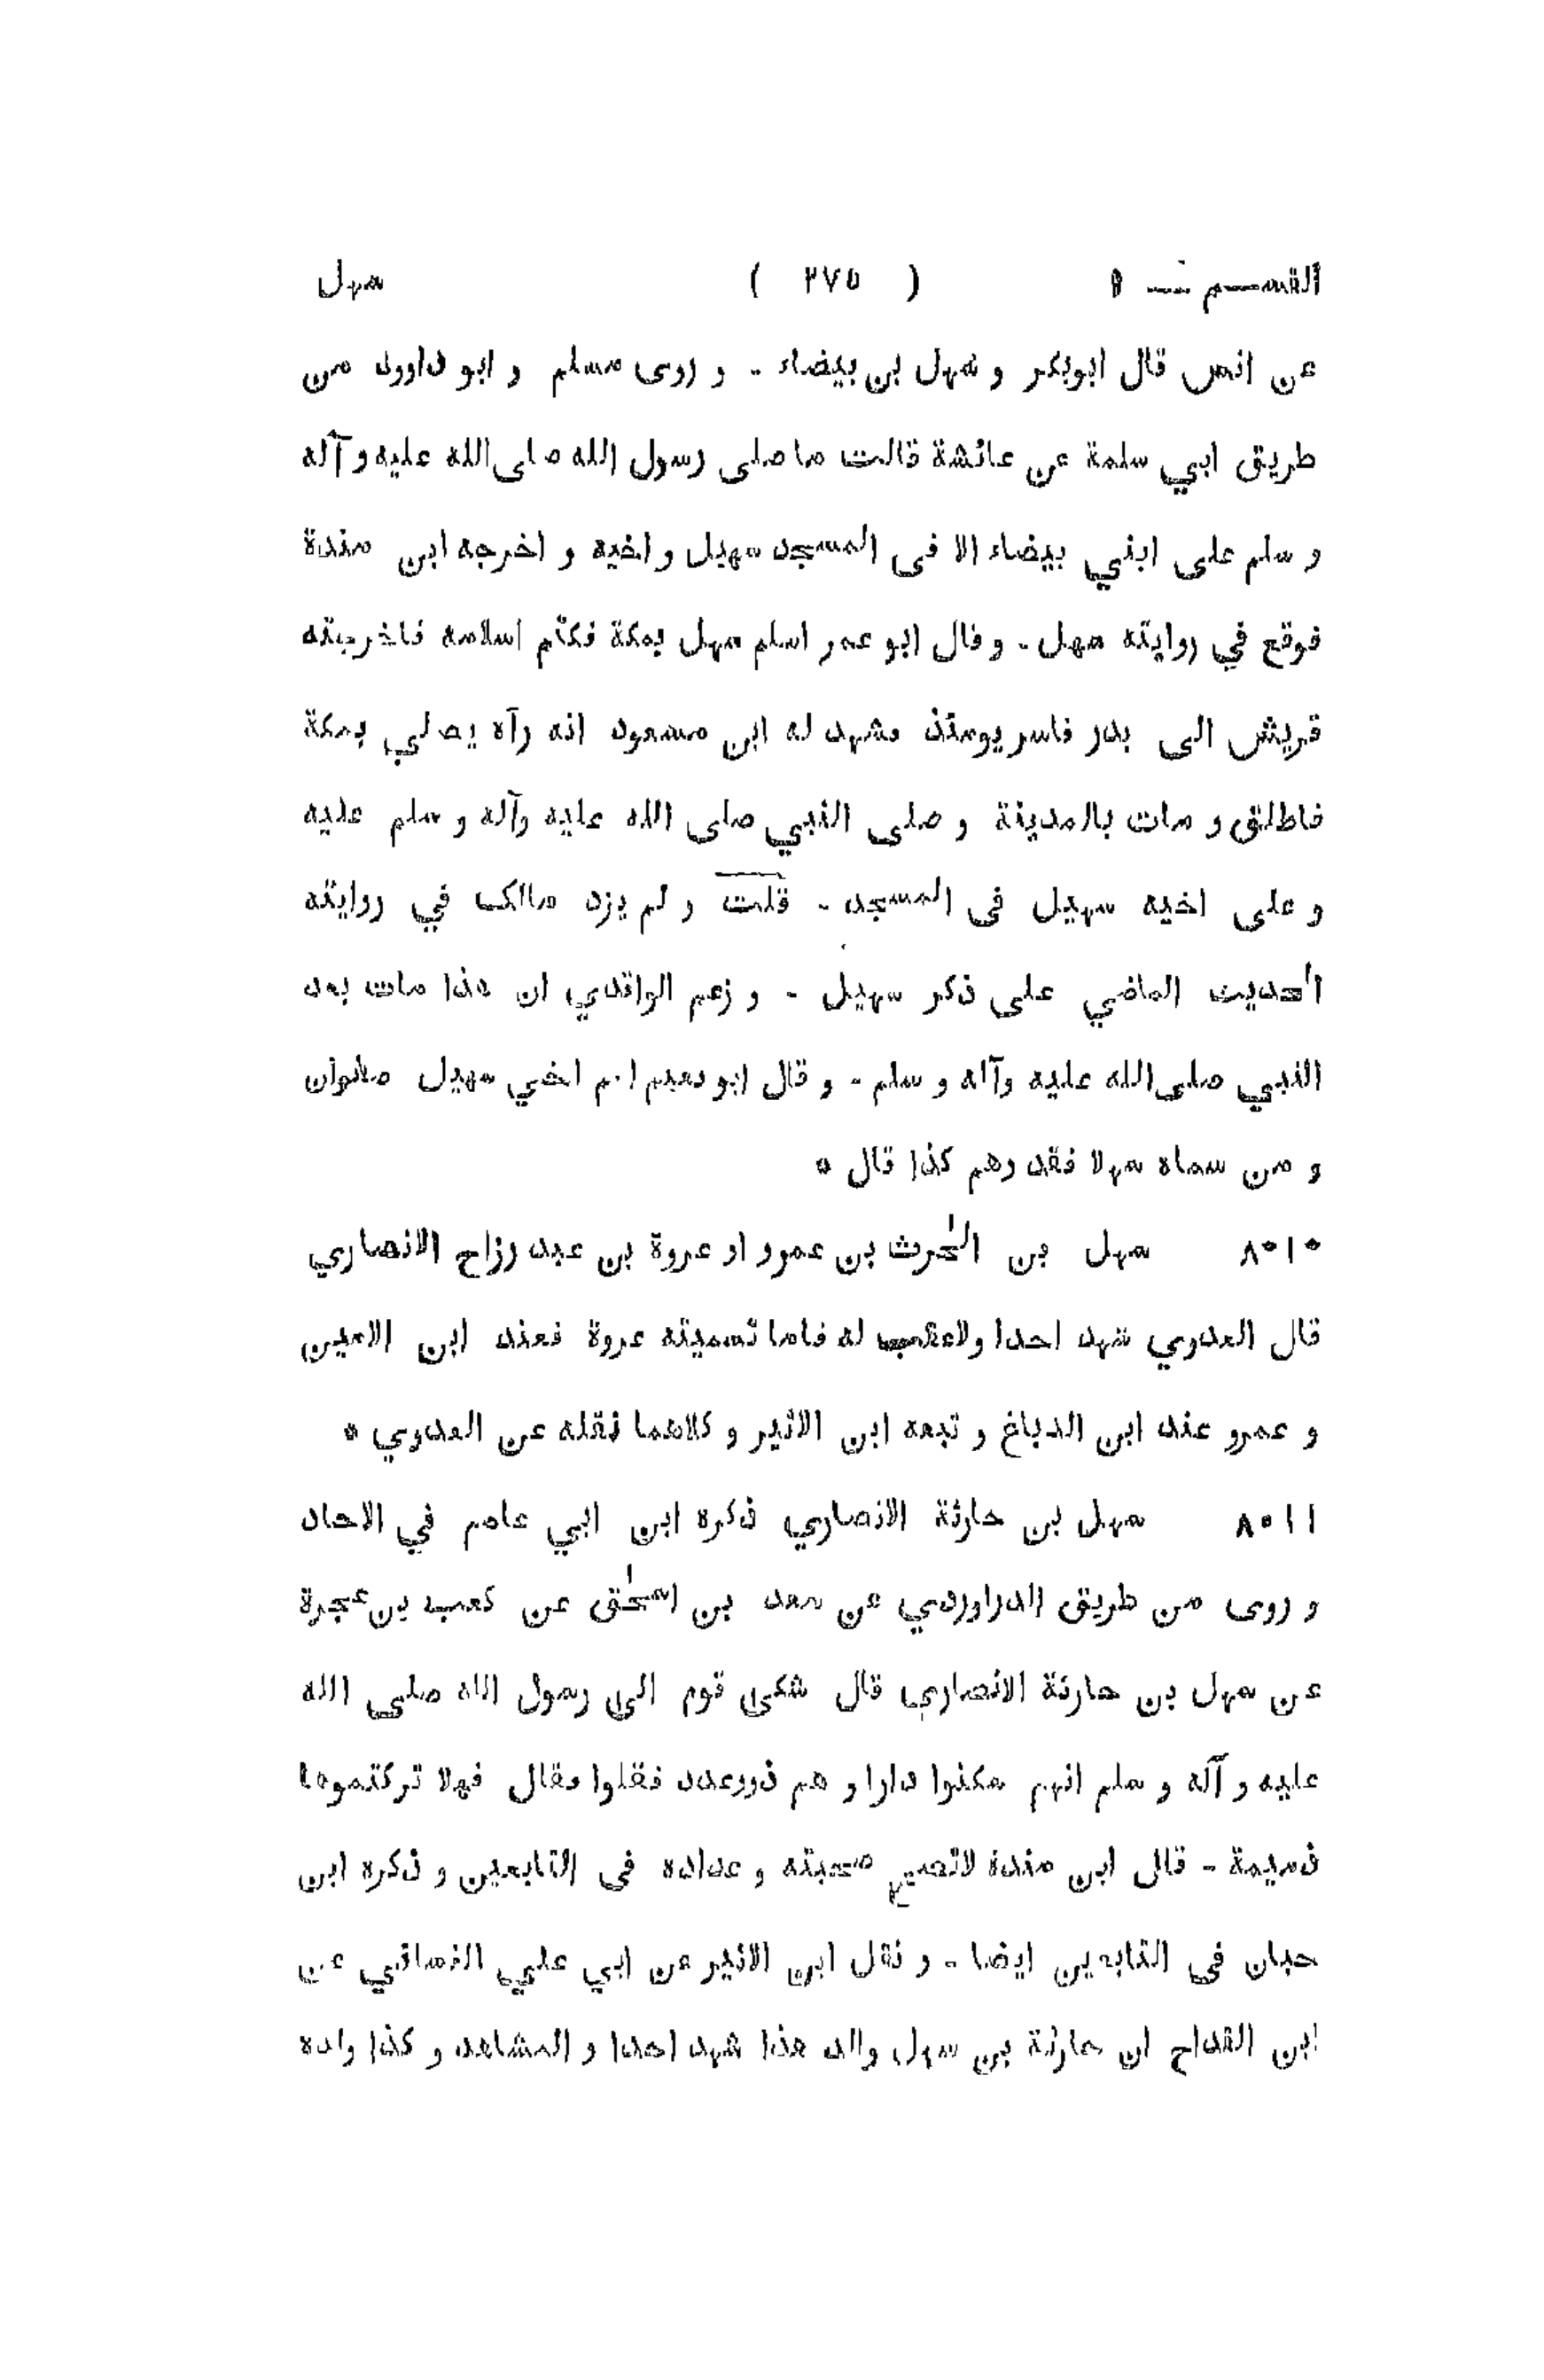 القسـم ـــ ١ ( ٢٧٥ ) سهل
عن انس قال ابوبكر و سهل بن بيضاء - و روى مسلم و ابو داوود من
طريق ابي سلمة عن عائشة قالت ما صلى رسول الله صلى الله عليه و آله
و سلم على ابني بيضاء الا فى المسجد سهيل و اخيه و اخرجه ابن مندة
فوقع في روايته سهل - و قال ابو عمر اسلم سهل بمكة فكتم اسلامه فاخرجته
قريش الى بدر فاسر يومئذ فشهد له ابن مسعود انه رآه يصلي بمكة
فاطلق و مات بالمدينة و صلى النبي صلى الله عليه وآله و سلم عليه
و على اخيه سهيل فى المسجد - قلت و لم يزد مالك في روايته
الحديث الماضي على ذكر سهيل - و زعم الواقدي ان هذا مات بعد
النبي صلى الله عليه وآله و سلم - و قال ابو نعيم اسم اخي سهيل صفوان
و من سماه سهلا فقد وهم كذا قال *
٨٠١٠ سهل بن الحٰرث بن عمرو او عروة بن عبد رزاح الانصاري
قال العدوي شهد احدا ولاعقب له فاما تسميته عروة فعند ابن الامين
و عمرو عند ابن الدباغ و تبعه ابن الاثير و كلاهما نقله عن العدوي *
٨٠١١ سهل بن حارثة الانصاري ذكره ابن ابي عاصم في الاحاد
و روى من طريق الدراوردي عن سعد بن اسحٰق عن كعب بن عجرة
عن سهل بن حارثة الانصاري قال شكى قوم الى رسول الله صلى الله
عليه و آله و سلم انهم سكنوا دارا و هم ذووعدد فقلوا فقال فهلا تركتموها
ذميمة - قال ابن مندة لاتصح صحبته و عداده فى التابعين و ذكره ابن
حبان فى التابعين ايضا - و نقل ابن الاثير عن ابي علي الغساني عن
ابن القداح ان حارثة بن سهل والد هذا شهد احدا و المشاهد و كذا ولده